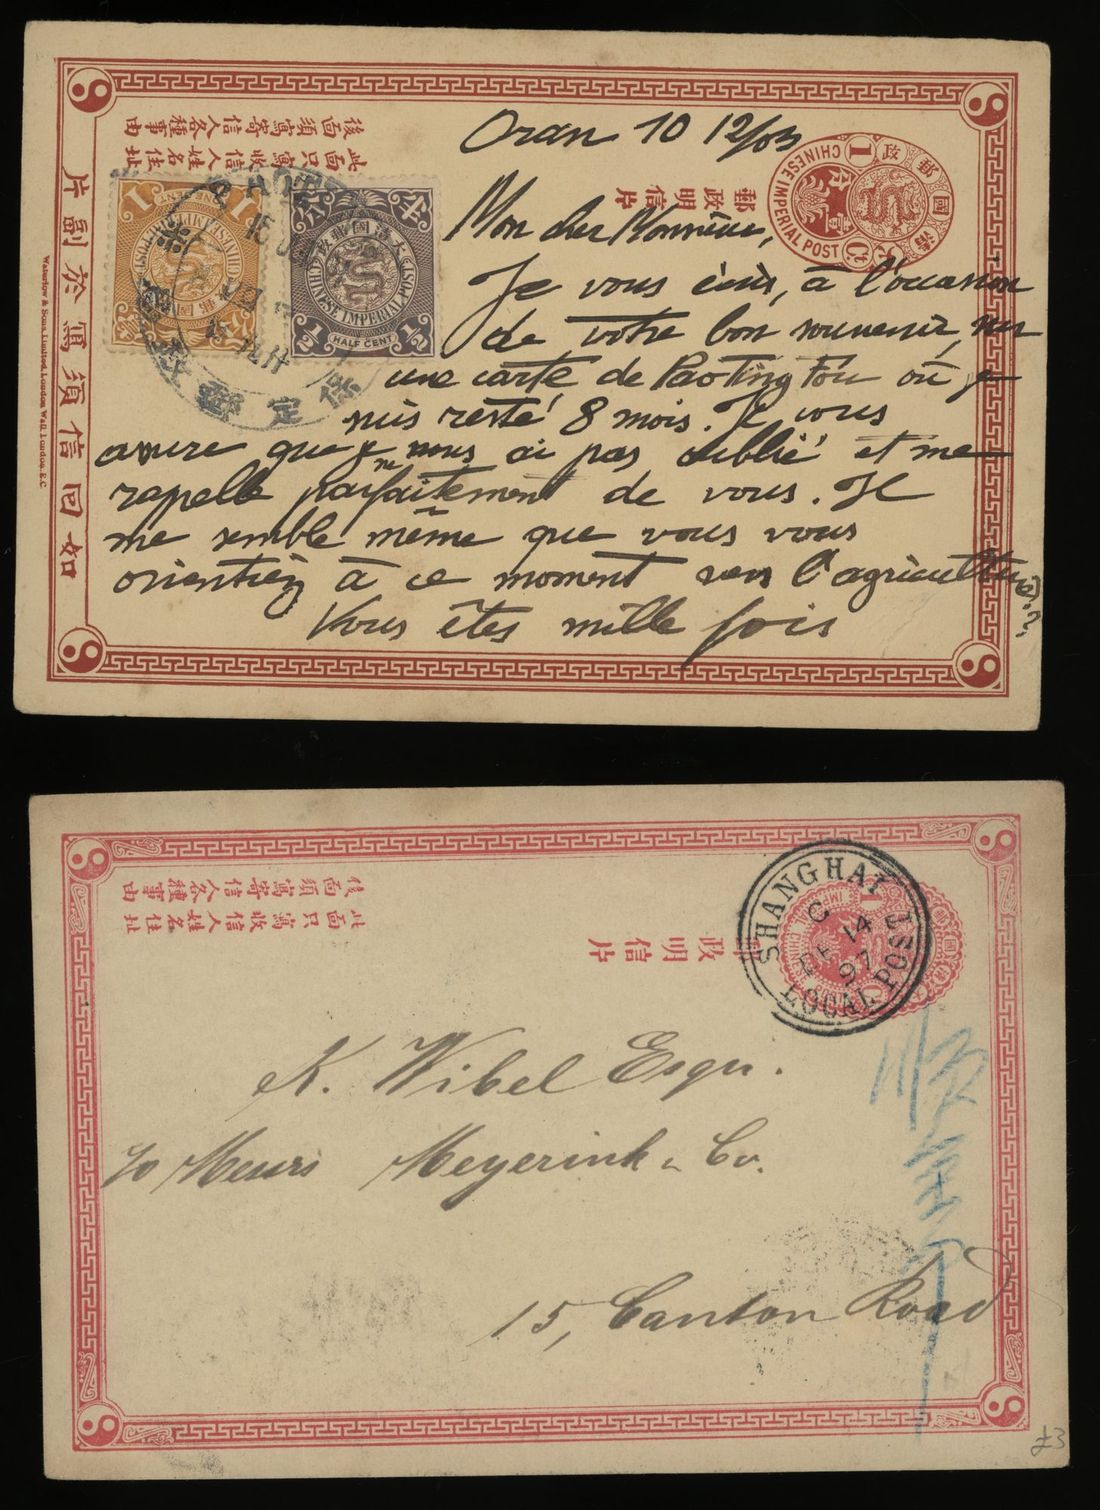 後面須寫寄信人各種事由
此面只寫收信人姓名住址
郵政明信片
如回信須寫於副片
Waterlow & Sons Limited, London Wall, London, E.C.
大清國郵政
1
CHINESE IMPERIAL POST
1 ONE CENT
CHINESE IMPERIAL POST
大清國郵政
CHINESE IMPERIAL POST
½ HALF CENT ½
保定
Oran 10 12/03
Mon cher Monsieur,
Je vous écris, à l'occasion
de votre bon souvenir, sur
une carte de Paoting Fou où je
suis resté 8 mois. Je vous
assure que je ne vous ai pas oublié et me
rappelle parfaitement de vous. Il
me semble même que vous vous
orientiez à ce moment vers l'agriculture?
Vous êtes mille fois
後面須寫寄信人各種事由
此面只寫收信人姓名住址
郵政明信片
SHANGHAI
C
DE 14
97
LOCAL POST
K. Wibel Esqr.
c/o Messrs Meyerink & Co.
15, Canton Road
£3